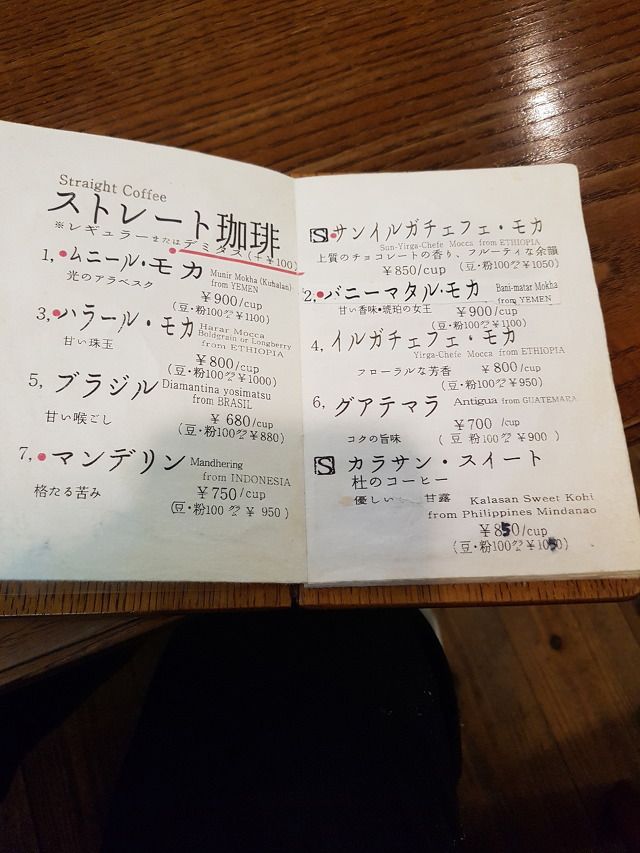 Straight Coffee
ストレート珈琲
※レギュラーまたはデミタス(+¥100)
1, ムニール・モカ Munir Mokha (Kuhalan)
from YEMEN
光のアラベスク
¥900/cup
(豆・粉100グラ¥1100)
3, ハラール・モカ Harar Mocca
Boldgrain or Longberry
from ETHIOPIA
甘い珠玉
¥800/cup
(豆・粉100グラ¥1000)
5, ブラジル Diamantina yosimatsu
from BRASIL
甘い喉ごし
¥680/cup
(豆・粉100グラ¥880)
7, マンデリン Mandhering
from INDONESIA
格たる苦み
¥750/cup
(豆・粉100グラ¥950)
S サンイルガチェフェ・モカ
Sun-Yirga-Chefe Mocca from ETHIOPIA
上質のチョコレートの香り、フルーティな余韻
¥850/cup (豆・粉100グラ¥1050)
2, バニーマタル・モカ Bani-matar Mokha
from YEMEN
甘い香味・琥珀の女王 ¥900/cup
(豆・粉100グラ¥1100)
4, イルガチェフェ・モカ
Yirga-Chefe Mocca from ETHIOPIA
フローラルな芳香 ¥800/cup
(豆・粉100グラ¥950)
6, グアテマラ Antigua from GUATEMARA
¥700/cup
コクの旨味 (豆・粉100グラ¥900)
S カラサン・スイート
杜のコーヒー
優しい 甘露 Kalasan Sweet Kohi
from Philippines Mindanao
¥850/cup
(豆・粉100グラ¥1050)